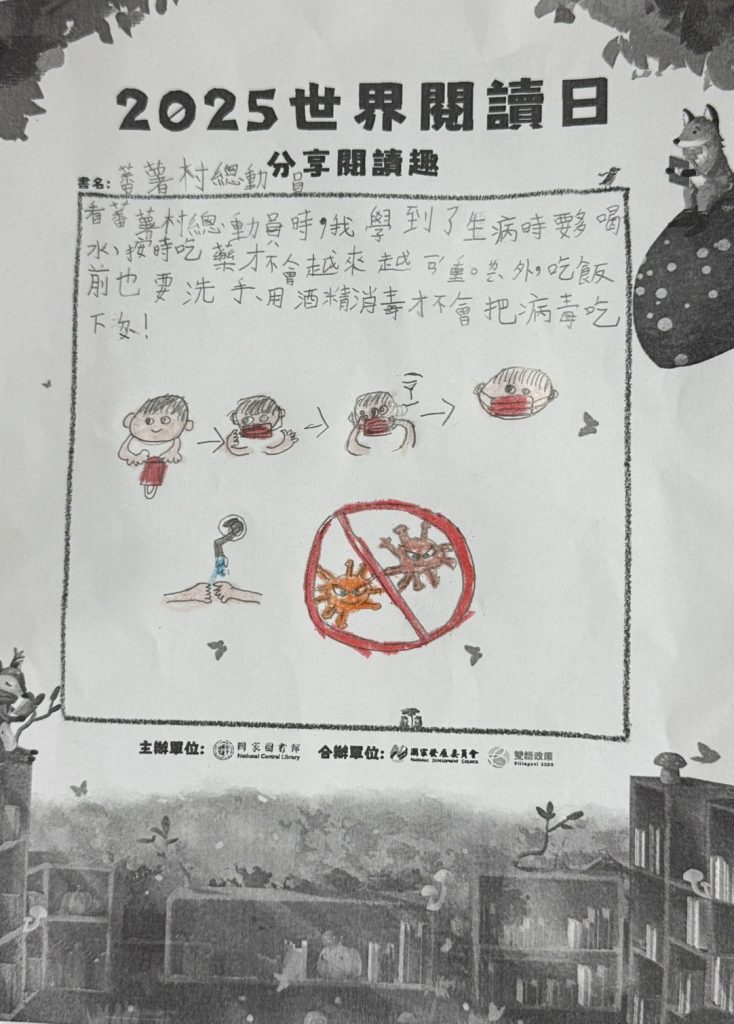 2025世界閱讀日
分享閱讀趣
書名：蕃薯村總動員
看蕃薯村總動員時，我學到了生病時要多喝
水、按時吃藥才不會越來越嚴重。另外，吃飯
前也要洗手、用酒精消毒才不會把病毒吃
下沒！
主辦單位： 國家圖書館 National Central Library 合辦單位： 國家發展委員會 NATIONAL DEVELOPMENT COUNCIL 雙語政策 Bilingual 2030